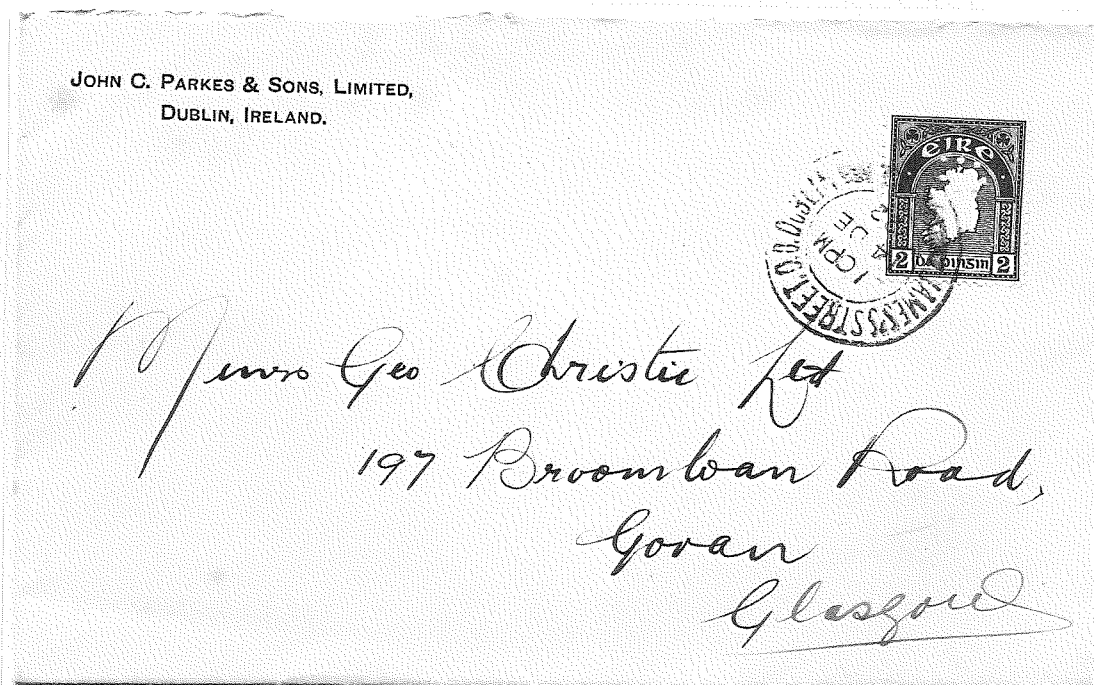 JOHN C. PARKES & SONS, LIMITED,
DUBLIN, IRELAND.
EIRE
2 DÁ PINGIN 2
JAMES'S STREET, D.O. DUBLIN
1 CPM
4 DE
Messrs Geo Christie Ltd
197 Broomloan Road,
Govan
Glasgow